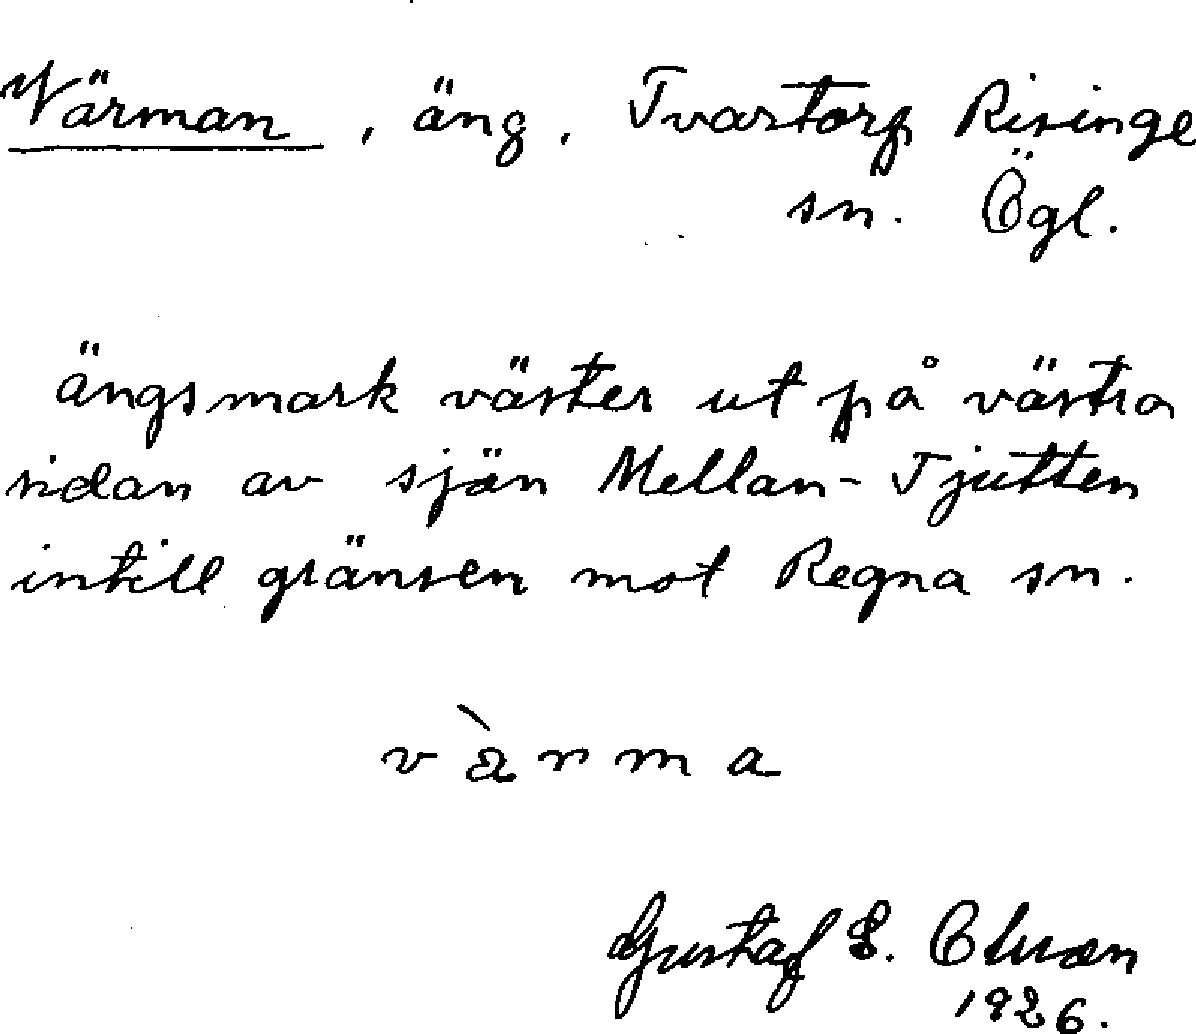 Värman, äng. Tvartorp Risinge
sn. Ögl.
ängsmark väster ut på västra
sidan av sjön Mellan-Tjutten
intill gränsen mot Regna sn.
v à r m a
Gustaf E.
1926.